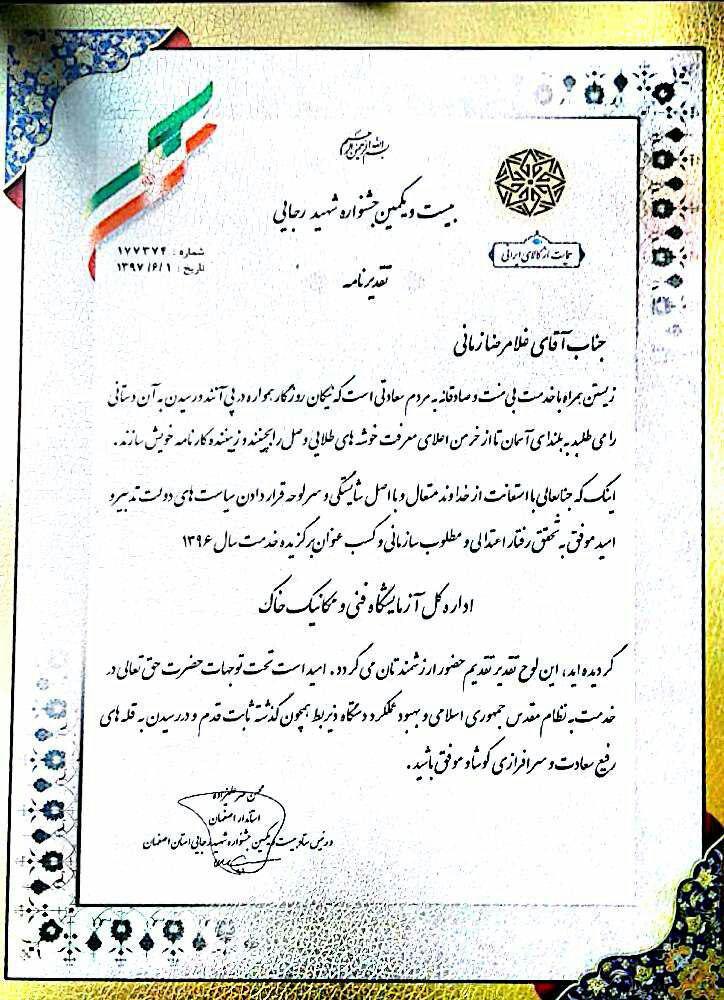 بسم الله الرحمن الرحیم
بیست و یکمین جشنواره شهید رجایی
حمایت از کالای ایرانی
شماره : ۱۷۷۳۷۴
تاریخ : ۱۳۹۷/۶/۱
تقدیرنامه
جناب آقای غلامرضا زمانی
زیستن همراه با خدمت بی منت و صادقانه به مردم سعادتی است که نیکان روزگار همواره در پی آنند و رسیدن به آن دستانی
را می طلبد به بلندای آسمان تا از خرمن اعلای معرفت خوشه های طلایی وصل را بچینند و زیبنده کارنامه خویش سازند .
اینک که جنابعالی با استعانت از خداوند متعال و با اصل شایستگی و سرلوحه قرار دادن سیاست های دولت تدبیر و
امید موفق به تحقق رفتار اعتدالی و مطلوب سازمانی و کسب عنوان برگزیده خدمت سال ۱۳۹۶
اداره کل آزمایشگاه فنی و مکانیک خاک
گردیده اید ، این لوح تقدیر تقدیم حضور ارزشمندتان می گردد . امید است تحت توجهات حضرت حق تعالی در
خدمت به نظام مقدس جمهوری اسلامی و بهبود عملکرد دستگاه ذیربط همچون گذشته ثابت قدم و در رسیدن به قله های
رفیع سعادت و سرافرازی کوشا و موفق باشید .
محسن مهرعلیزاده
استاندار اصفهان
و رئیس ستاد بیست و یکمین جشنواره شهید رجایی استان اصفهان